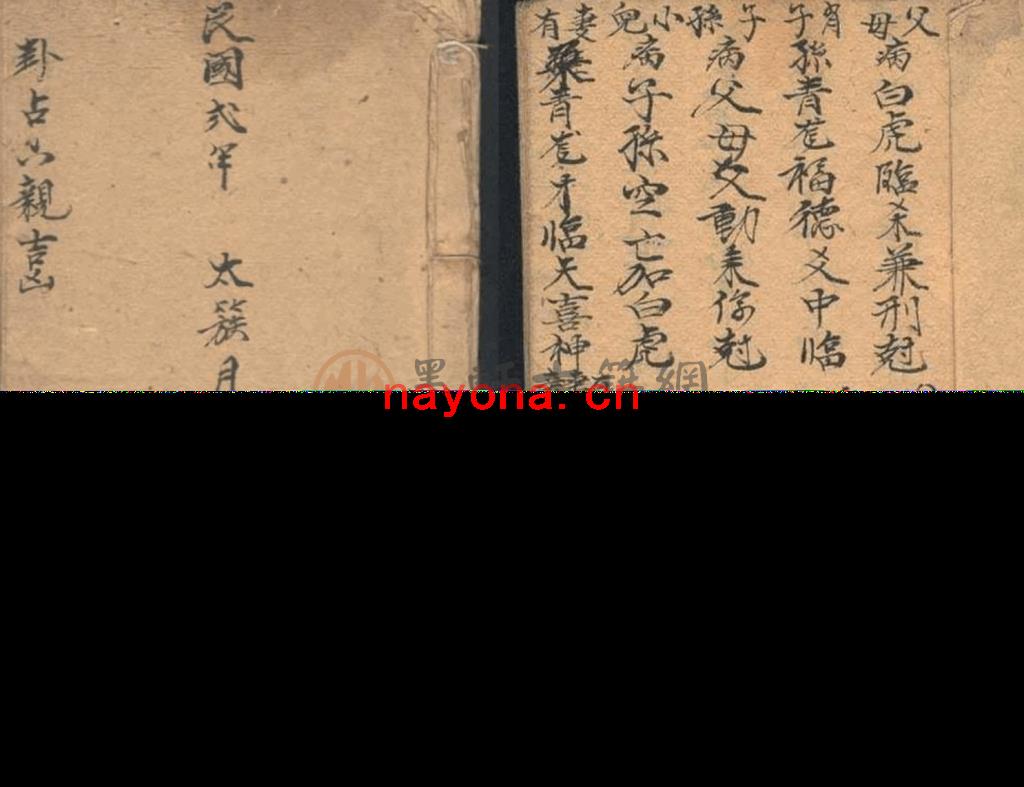 民國弍年 太簇月
卦占六親吉凶
父母病白虎臨爻兼刑尅
子孫青龍福德爻中臨
子孫病父母爻動來傷尅
小兒病子孫空亡加白虎
妻有 青龍才臨天喜神
墨 古籍網
nayona.cn